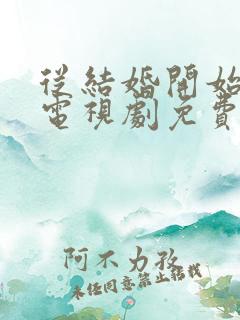 從結婚開始
電視劇免費
阿不力孜
未任同意禁止轉載